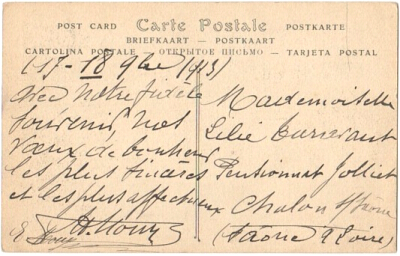 POST CARD Carte Postale POSTKARTE
BRIEFKAART — POSTKAART
CARTOLINA POSTALE — ОТКРЫТОЕ ПИСЬМО — TARJETA POSTAL
17 - 18 9bre 1913
avec notre fidèle
souvenir nos
vœux de bonheur
les plus sincères
et les plus affectueux
Mademoiselle
Lilie
Pensionnat Jolliet
Chalon s/Saône
(Saône & Loire)